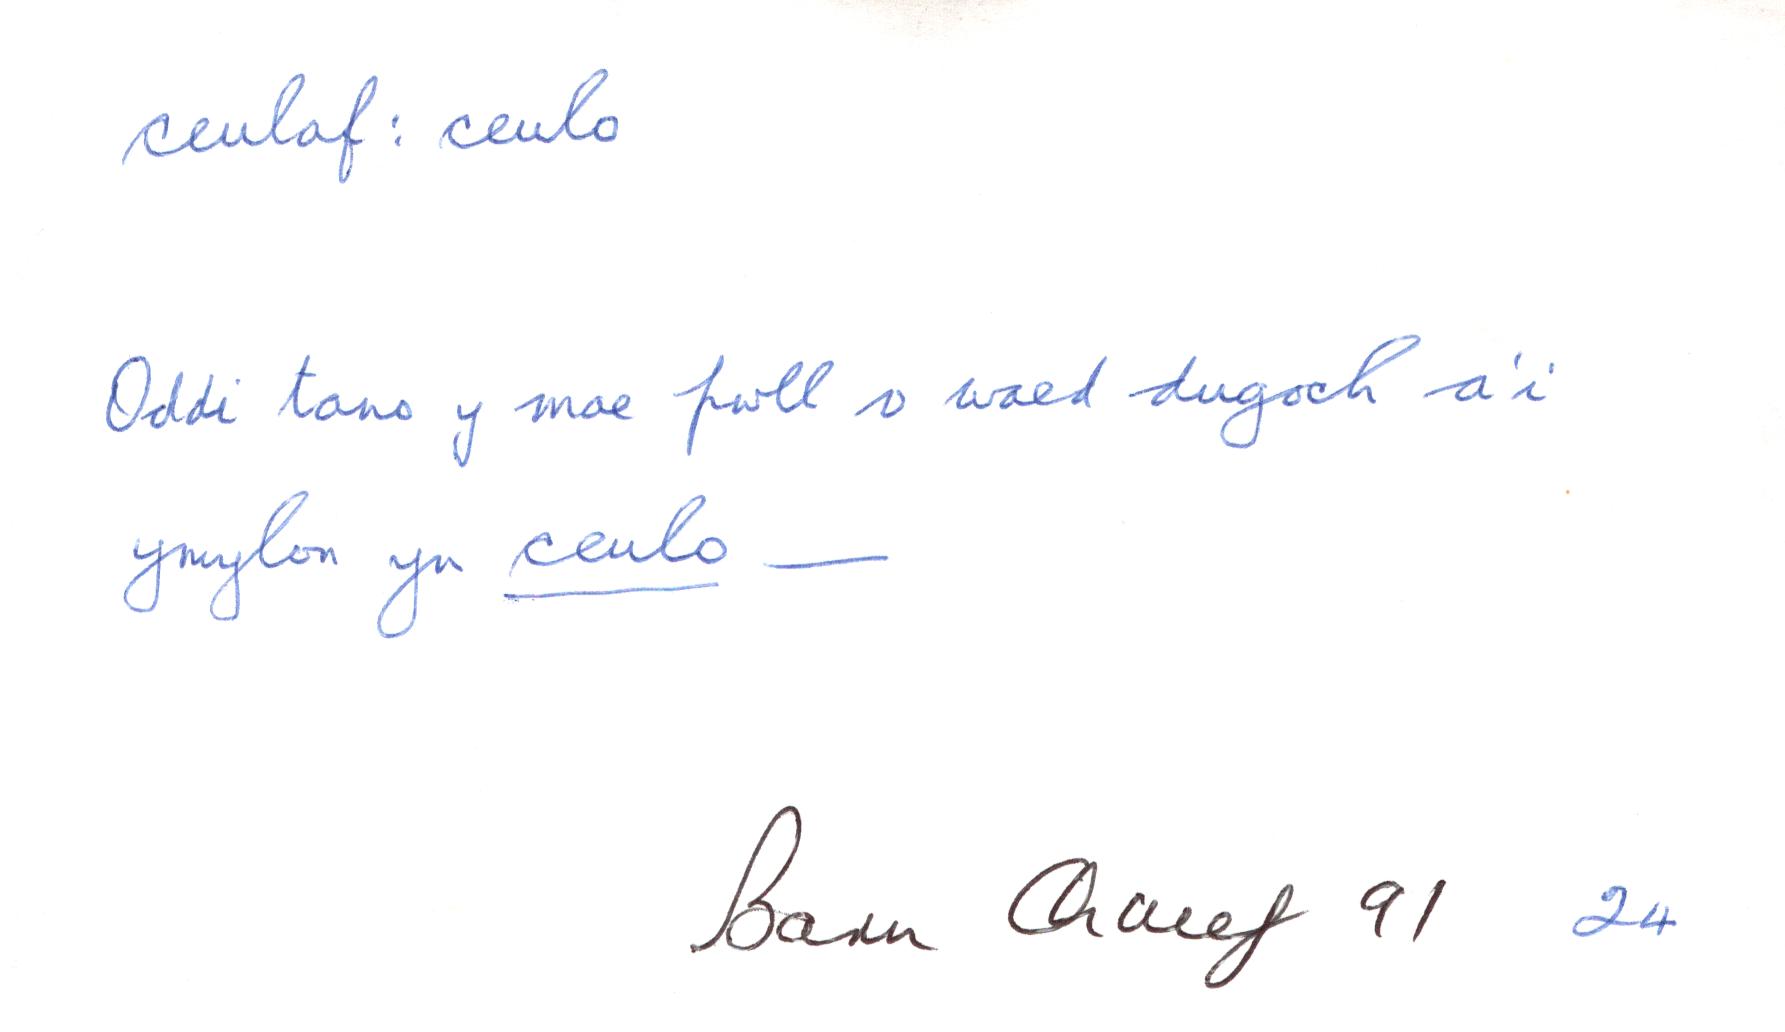 ceulaf: ceulo
Oddi tano y mae pwll o waed dugoch a'i
ymylon yn ceulo —
Barn Chwef 91 24